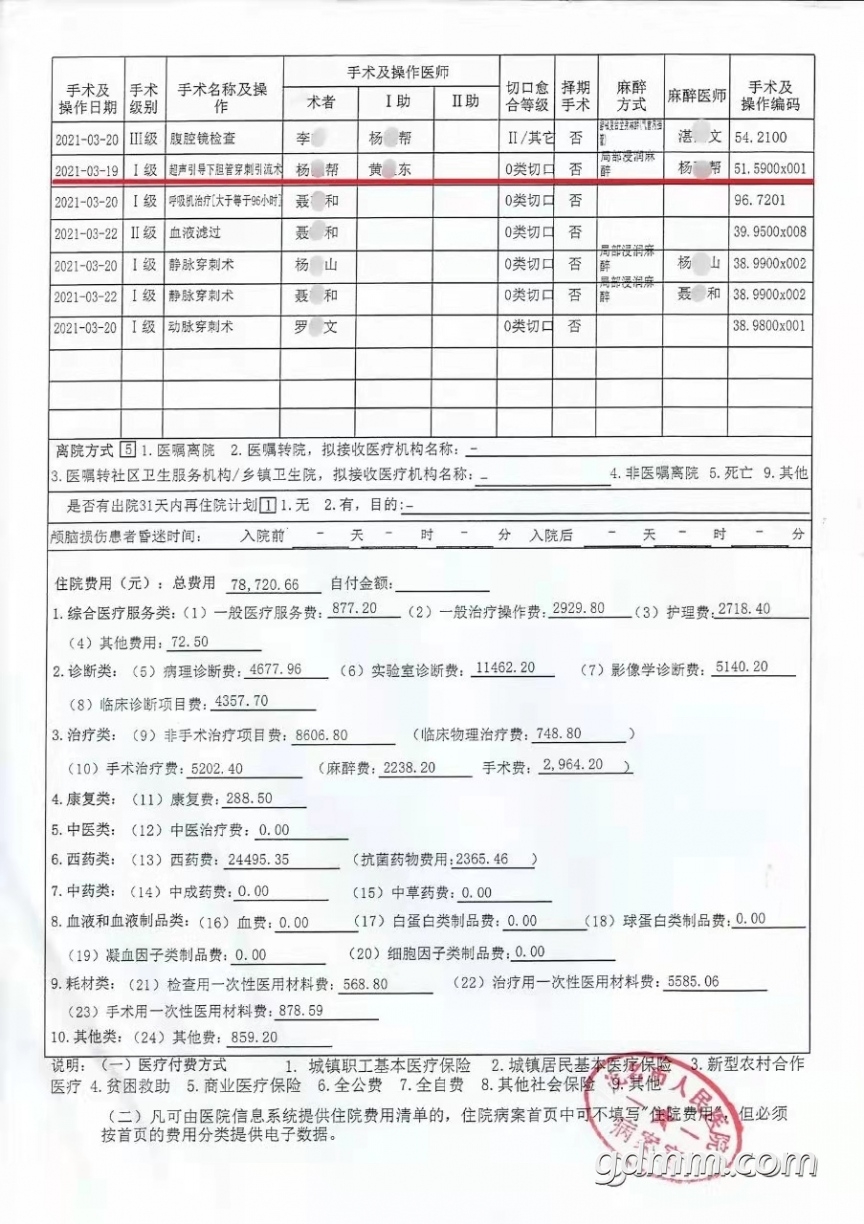 手术及操作日期 手术级别 手术名称及操作 手术及操作医师 切口愈合等级 择期手术 麻醉方式 麻醉医师 手术及操作编码
术者 I助 II助
2021-03-20 III级 腹腔镜检查 李 杨 帮 II/其它 否 湛 文 54.2100
2021-03-19 I级 超声引导下胆管穿刺引流术 杨 帮 黄 东 0类切口 否 局部浸润麻醉 杨 帮 51.5900x001
2021-03-20 I级 呼吸机治疗[大于等于96小时] 聂 和 0类切口 否 96.7201
2021-03-22 II级 血液滤过 聂 和 0类切口 否 39.9500x008
2021-03-20 I级 静脉穿刺术 杨 山 0类切口 否 局部浸润麻醉 杨 山 38.9900x002
2021-03-22 I级 静脉穿刺术 聂 和 0类切口 否 局部浸润麻醉 聂 和 38.9900x002
2021-03-20 I级 动脉穿刺术 罗 文 0类切口 否 38.9800x001
离院方式 5 1.医嘱离院 2.医嘱转院，拟接收医疗机构名称：-
3.医嘱转社区卫生服务机构/乡镇卫生院，拟接收医疗机构名称：- 4.非医嘱离院 5.死亡 9.其他
是否有出院31天内再住院计划 1 1.无 2.有，目的：-
颅脑损伤患者昏迷时间： 入院前 - 天 - 时 - 分 入院后 - 天 - 时 - 分
住院费用（元）：总费用 78,720.66 自付金额：
1.综合医疗服务类：（1）一般医疗服务费：877.20 （2）一般治疗操作费：2929.80 （3）护理费：2718.40
（4）其他费用：72.50
2.诊断类：（5）病理诊断费：4677.96 （6）实验室诊断费：11462.20 （7）影像学诊断费：5140.20
（8）临床诊断项目费：4357.70
3.治疗类：（9）非手术治疗项目费：8606.80 （临床物理治疗费：748.80 ）
（10）手术治疗费：5202.40 （麻醉费：2238.20 手术费：2,964.20 ）
4.康复类：（11）康复费：288.50
5.中医类：（12）中医治疗费：0.00
6.西药类：（13）西药费：24495.35 （抗菌药物费用：2365.46 ）
7.中药类：（14）中成药费：0.00 （15）中草药费：0.00
8.血液和血液制品类：（16）血费：0.00 （17）白蛋白类制品费：0.00 （18）球蛋白类制品费：0.00
（19）凝血因子类制品费：0.00 （20）细胞因子类制品费：0.00
9.耗材类：（21）检查用一次性医用材料费：568.80 （22）治疗用一次性医用材料费：5585.06
（23）手术用一次性医用材料费：878.59
10.其他类：（24）其他费：859.20
说明：（一）医疗付费方式 1. 城镇职工基本医疗保险 2.城镇居民基本医疗保险 3.新型农村合作
医疗 4.贫困救助 5.商业医疗保险 6.全公费 7.全自费 8.其他社会保险 9.其他
（二）凡可由医院信息系统提供住院费用清单的，住院病案首页中可不填写"住院费用"，但必须
按首页的费用分类提供电子数据。
市人民医院
病案
gdmm.com